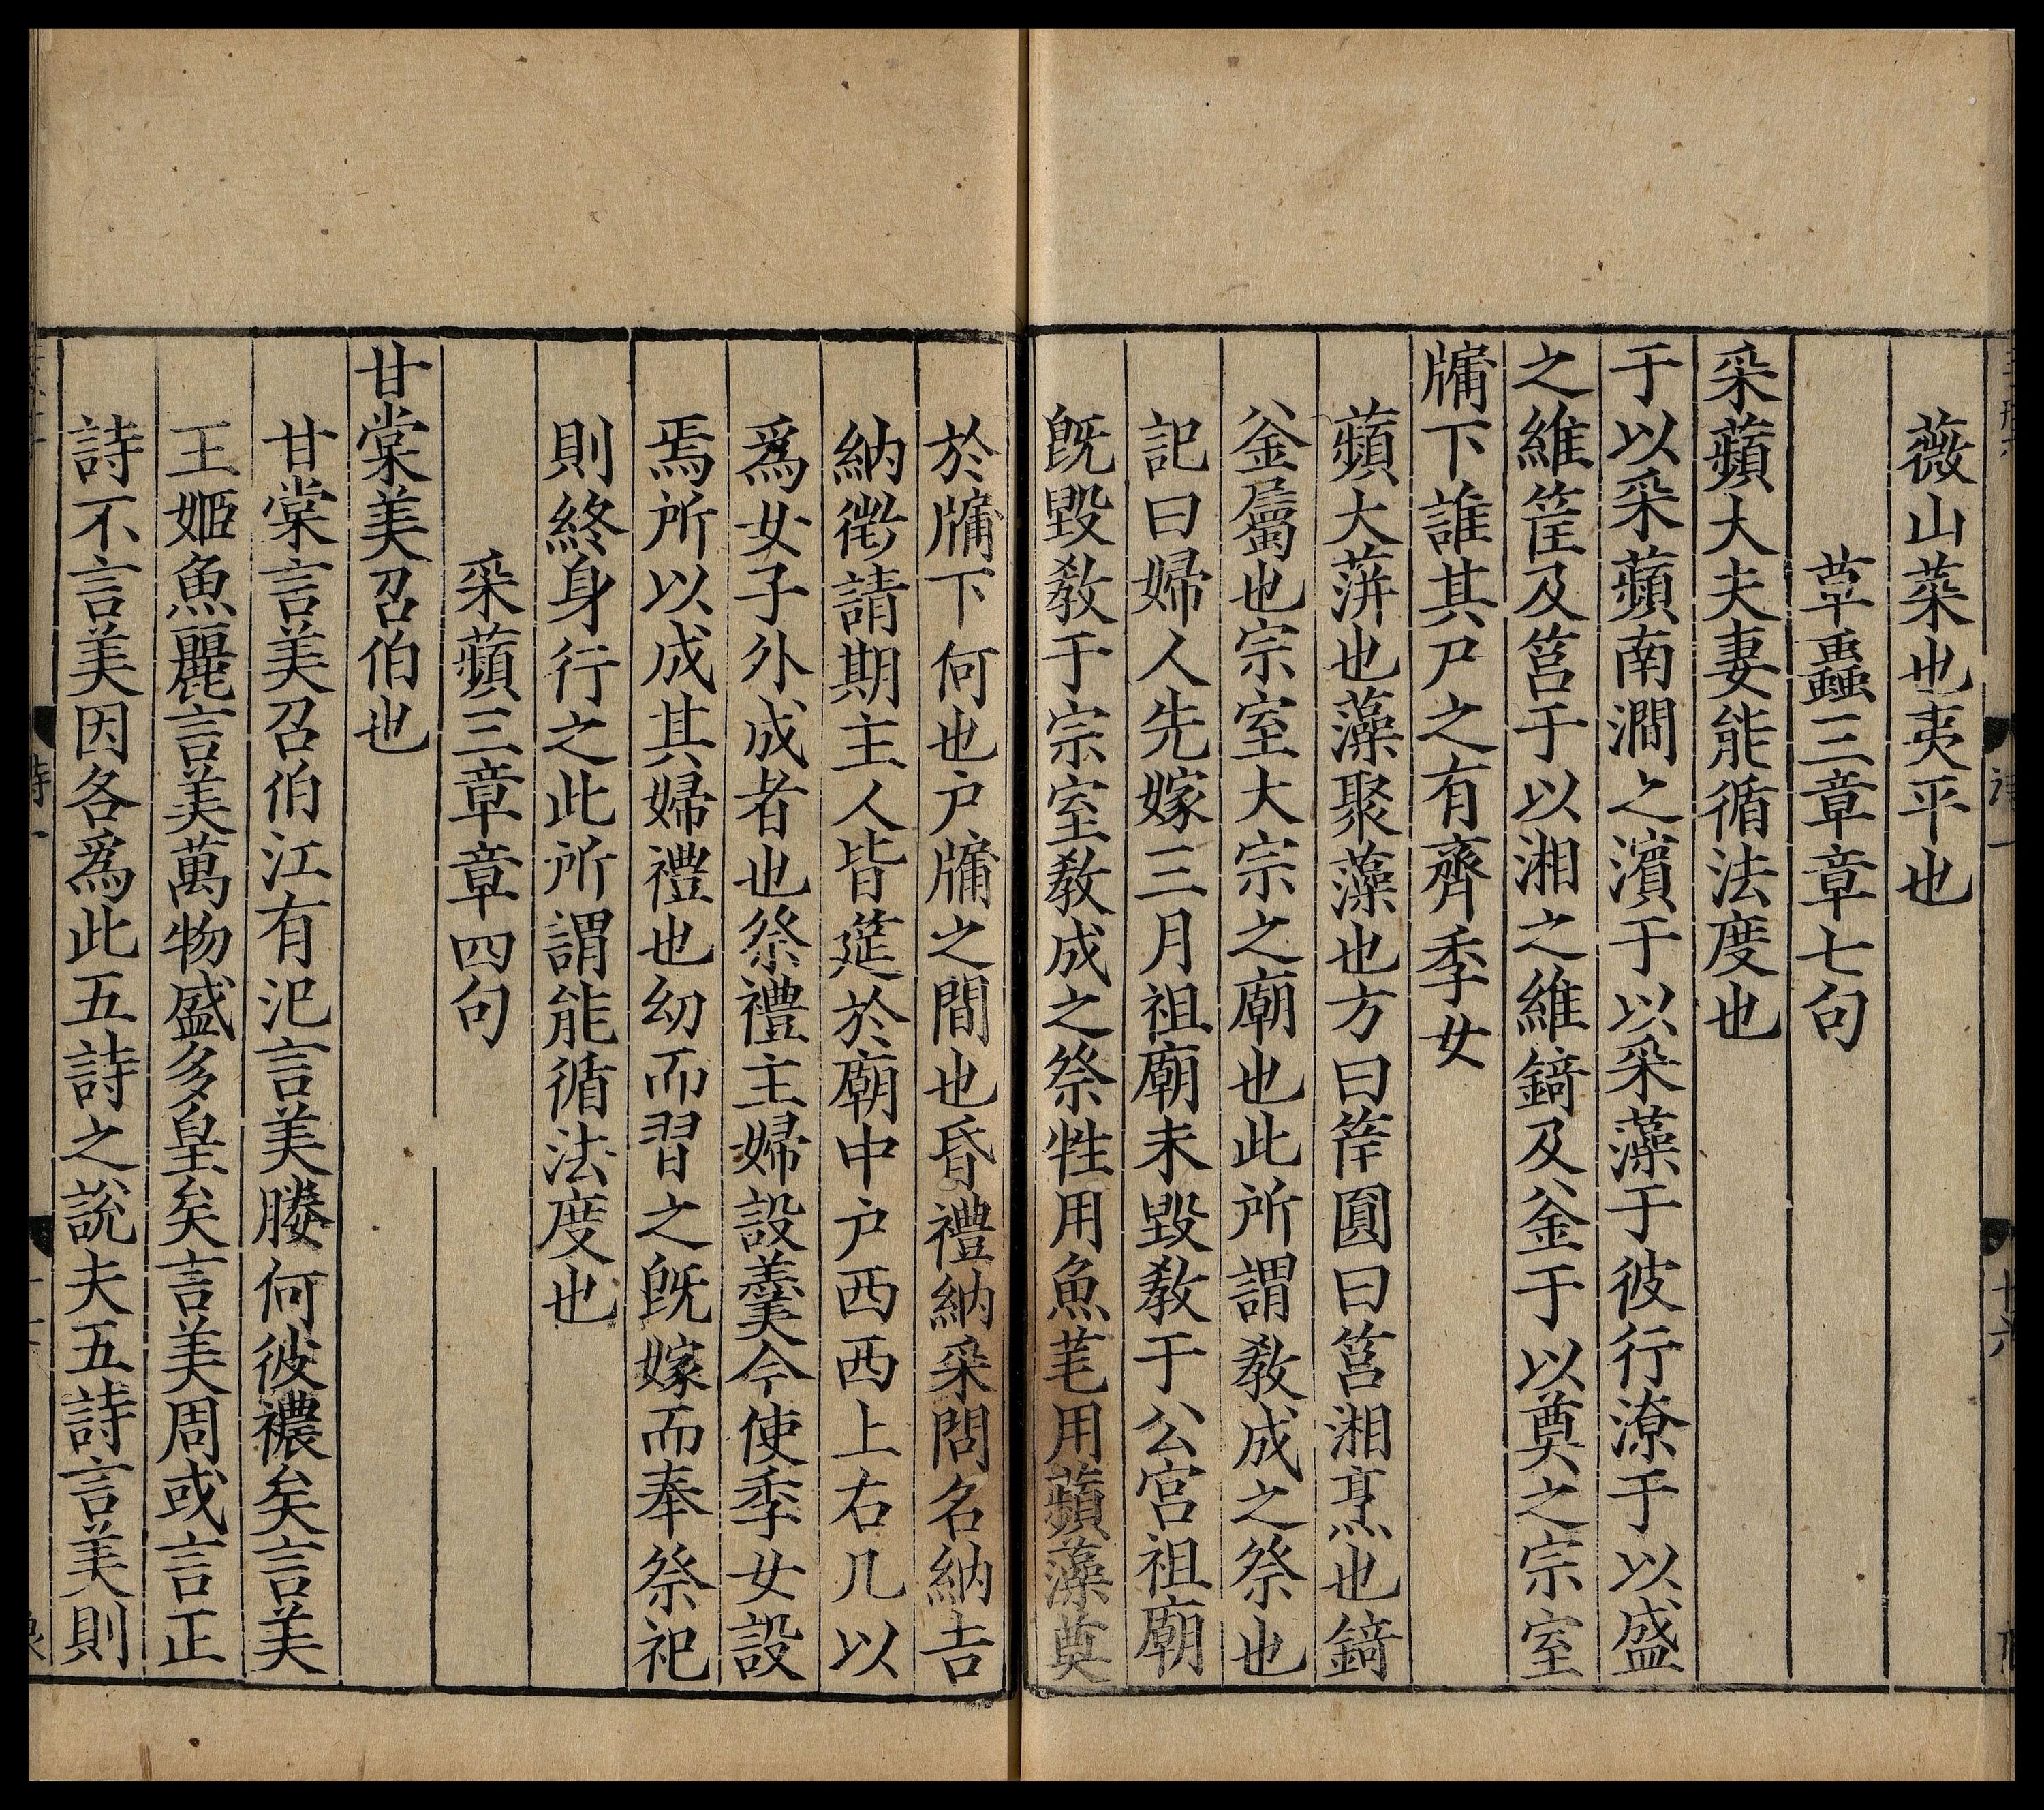 薇山菜也夷平也
草蟲三章章七句
采蘋大夫妻能循法度也
于以采蘋南澗之濱于以采藻于彼行潦于以盛
之維筐及筥于以湘之維錡及釜于以奠之宗室
牖下誰其尸之有齊季女
蘋大蓱也藻聚藻也方曰筐圓曰筥湘烹也錡
釜屬也宗室大宗之廟也此所謂教成之祭也
記曰婦人先嫁三月祖廟未毀教于公宮祖廟
既毀教于宗室教成之祭牲用魚芼用蘋藻奠
於牖下何也户牖之間也昏禮納采問名納吉
納徵請期主人皆筵於廟中户西西上右几以
爲女子外成者也祭禮主婦設羹今使季女設
焉所以成其婦禮也幼而習之既嫁而奉祭祀
則終身行之此所謂能循法度也
采蘋三章章四句
甘棠美召伯也
甘棠言美召伯江有汜言美媵何彼襛矣言美
王姬魚麗言美萬物盛多皇矣言美周或言正
詩不言美因各爲此五詩之說夫五詩言美則